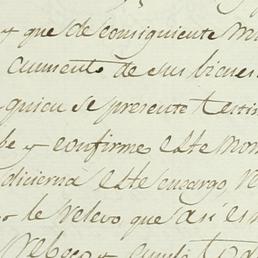 y que de consiguiente
aumento de sus bienes
quien se presente testim
be y confirme este
dicierna este encargo
le relevo que asi es